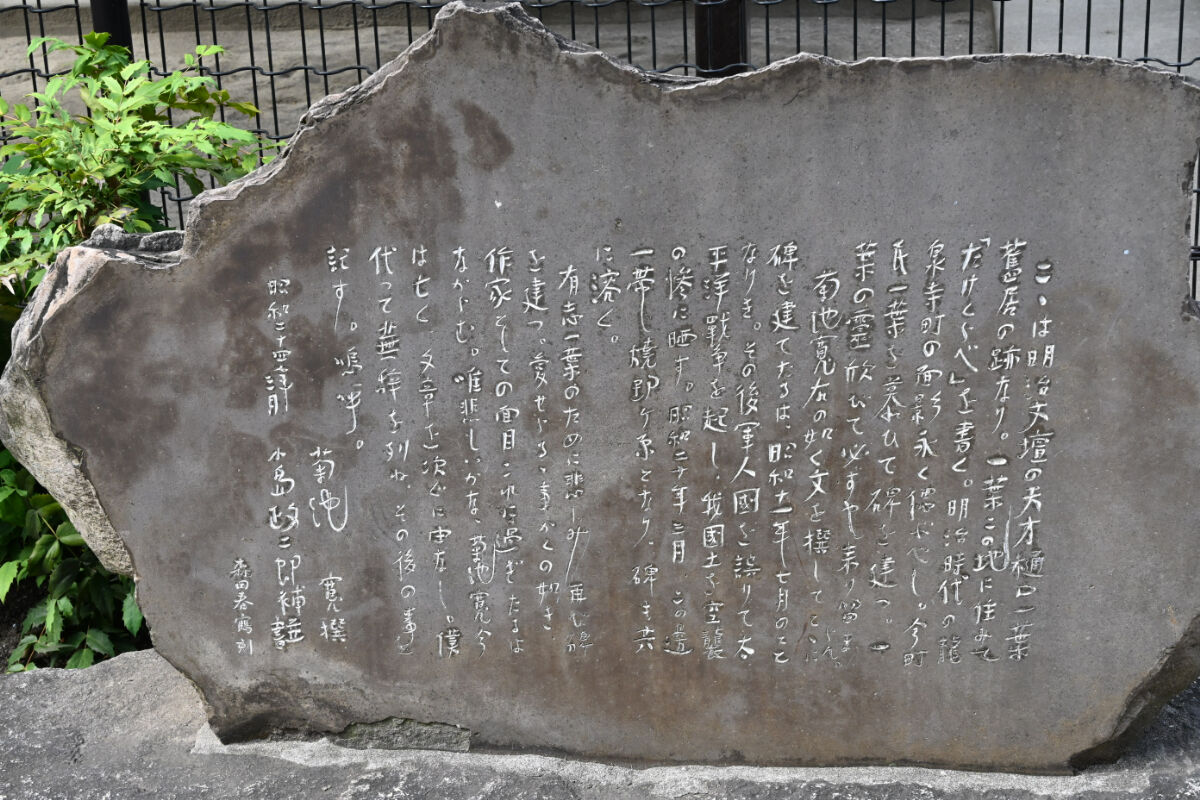 こゝは明治文壇の天才樋口一葉
舊居の跡なり。一葉この地に住みて
「たけくらべ」を書く。明治時代の龍
泉寺町の面影永く偲ぶべし。今町
民一葉を慕ひて碑を建つ。一
葉の靈欣びて必ずや来り留まらん。
菊池寛右の如く文を撰してこゝに
碑を建てたるは、昭和十一年七月のこと
なりき。その後軍人國を誤りて太
平洋戰争を起し、我國土を空襲
の惨に晒す。昭和二十年三月、この邊
一帯焼野ケ原となり、碑も共
に溶く。
有志一葉のために悲しみ再び碑
を建つ。愛せらるゝ事かくの如き、
作家としての面目これに過ぎたるは
なからむ。唯悲しいかな、菊池寛今
は亡く、文章を次ぐに由なし。僕
代って蕪辞を列ね、その後の事を
記す。嗚呼。
菊池 寛 撰
昭和二十四年三月 小島政二郎補並書
森田春鶴刻